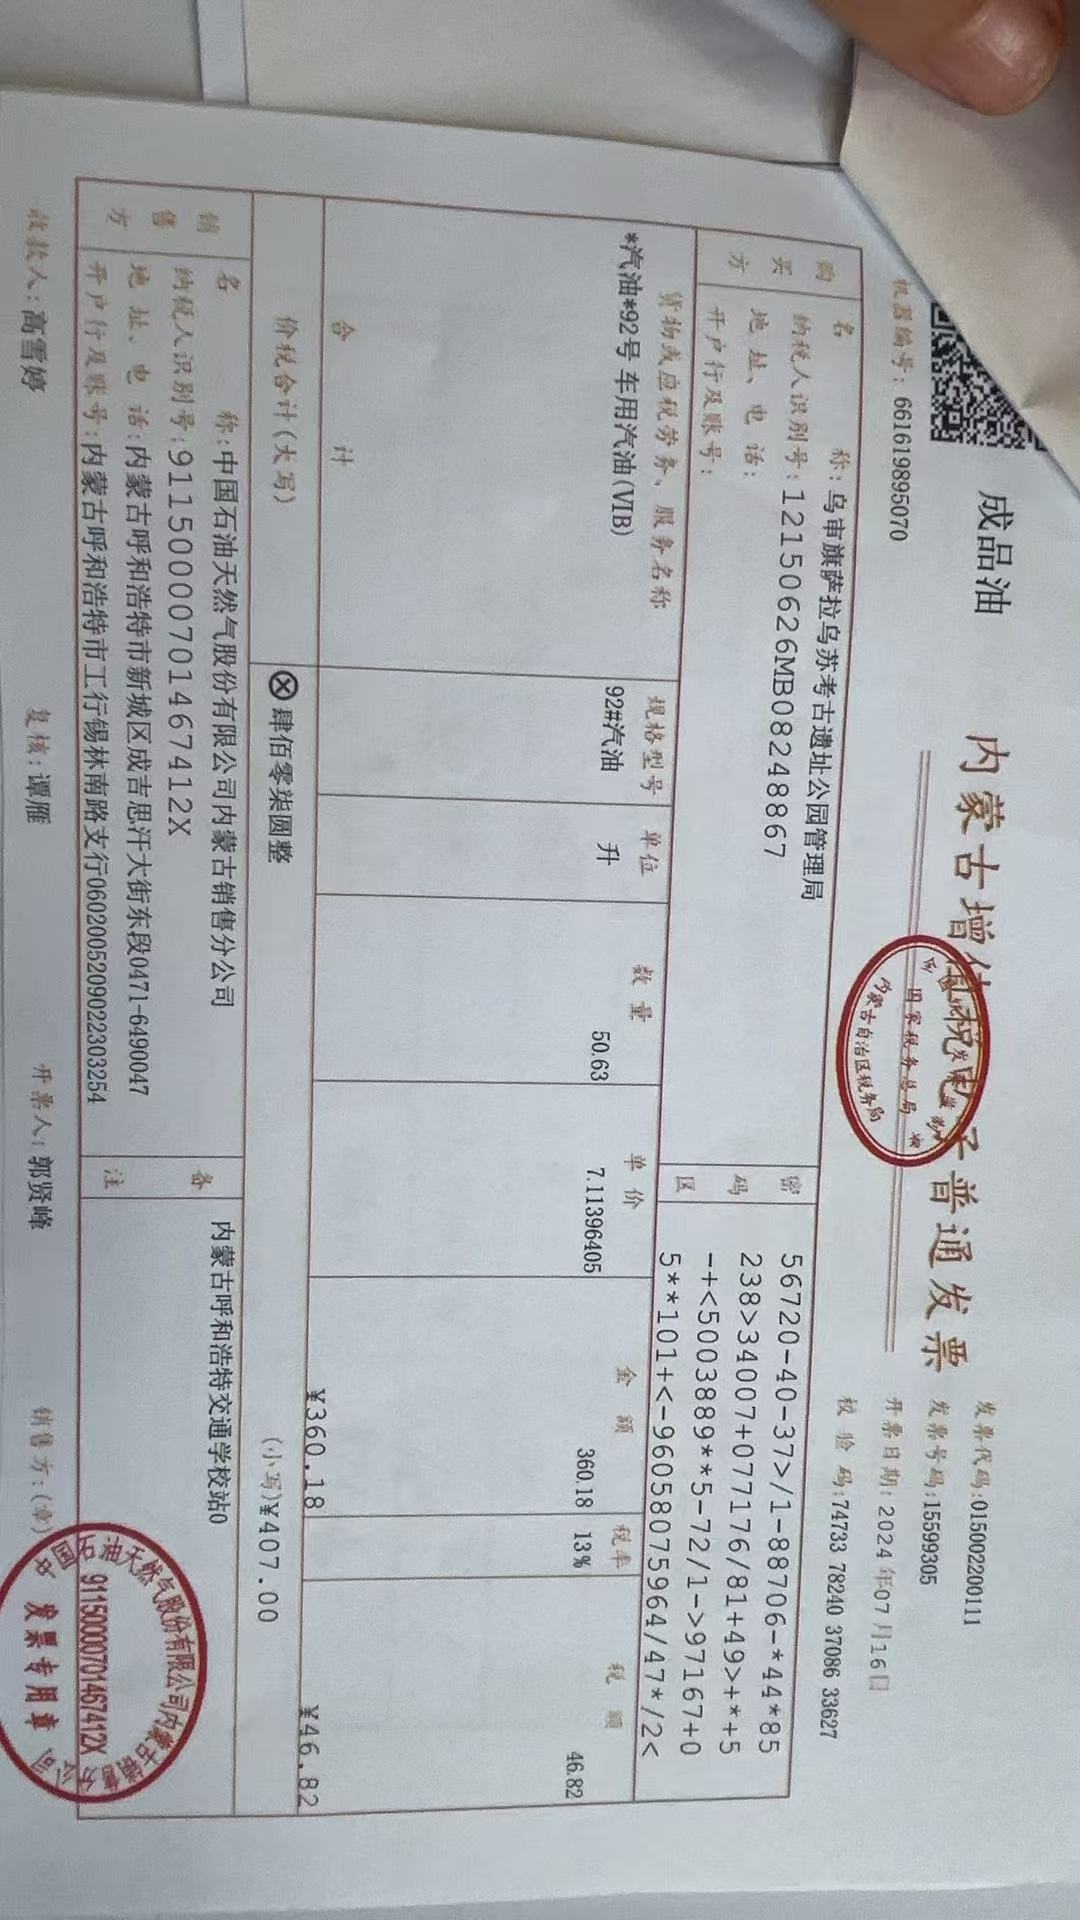 成品油
内蒙古增值税电子普通发票
国家税务总局
内蒙古自治区税务局
机器编号：661619895070
发票代码：015002200111
发票号码：15599305
开票日期：2024年07月16日
校验码：74733 78240 37086 33627
购买方
名称：乌审旗萨拉乌苏考古遗址公园管理局
纳税人识别号：12150626MB08248867
地址、电话：
开户行及账号：
密码区
56720-40-37>/1-88706-*44*85
238>34007+077176/81+49>+*+5
-+<5003889**5-72/1->97167+0
5**101+<-96058075964/47*/2<
货物或应税劳务、服务名称 规格型号 单位 数量 单价 金额 税率 税额
*汽油*92号 车用汽油(VIB) 92#汽油 升 50.63 7.11396405 360.18 13% 46.82
合计 ¥360.18 ¥46.82
价税合计(大写) ⊗肆佰零柒圆整 (小写)¥407.00
销售方
名称：中国石油天然气股份有限公司内蒙古销售分公司
纳税人识别号：91150000701467412X
地址、电话：内蒙古呼和浩特市新城区成吉思汗大街东段0471-6490047
开户行及账号：内蒙古呼和浩特市工行锡林南路支行0602005209022303254
备注
内蒙古呼和浩特交通学校站0
收款人：高雪婷 复核：谭雁 开票人：郭贤峰 销售方：(章)
中国石油天然气股份有限公司内蒙古销售分公司
91150000701467412X
发票专用章